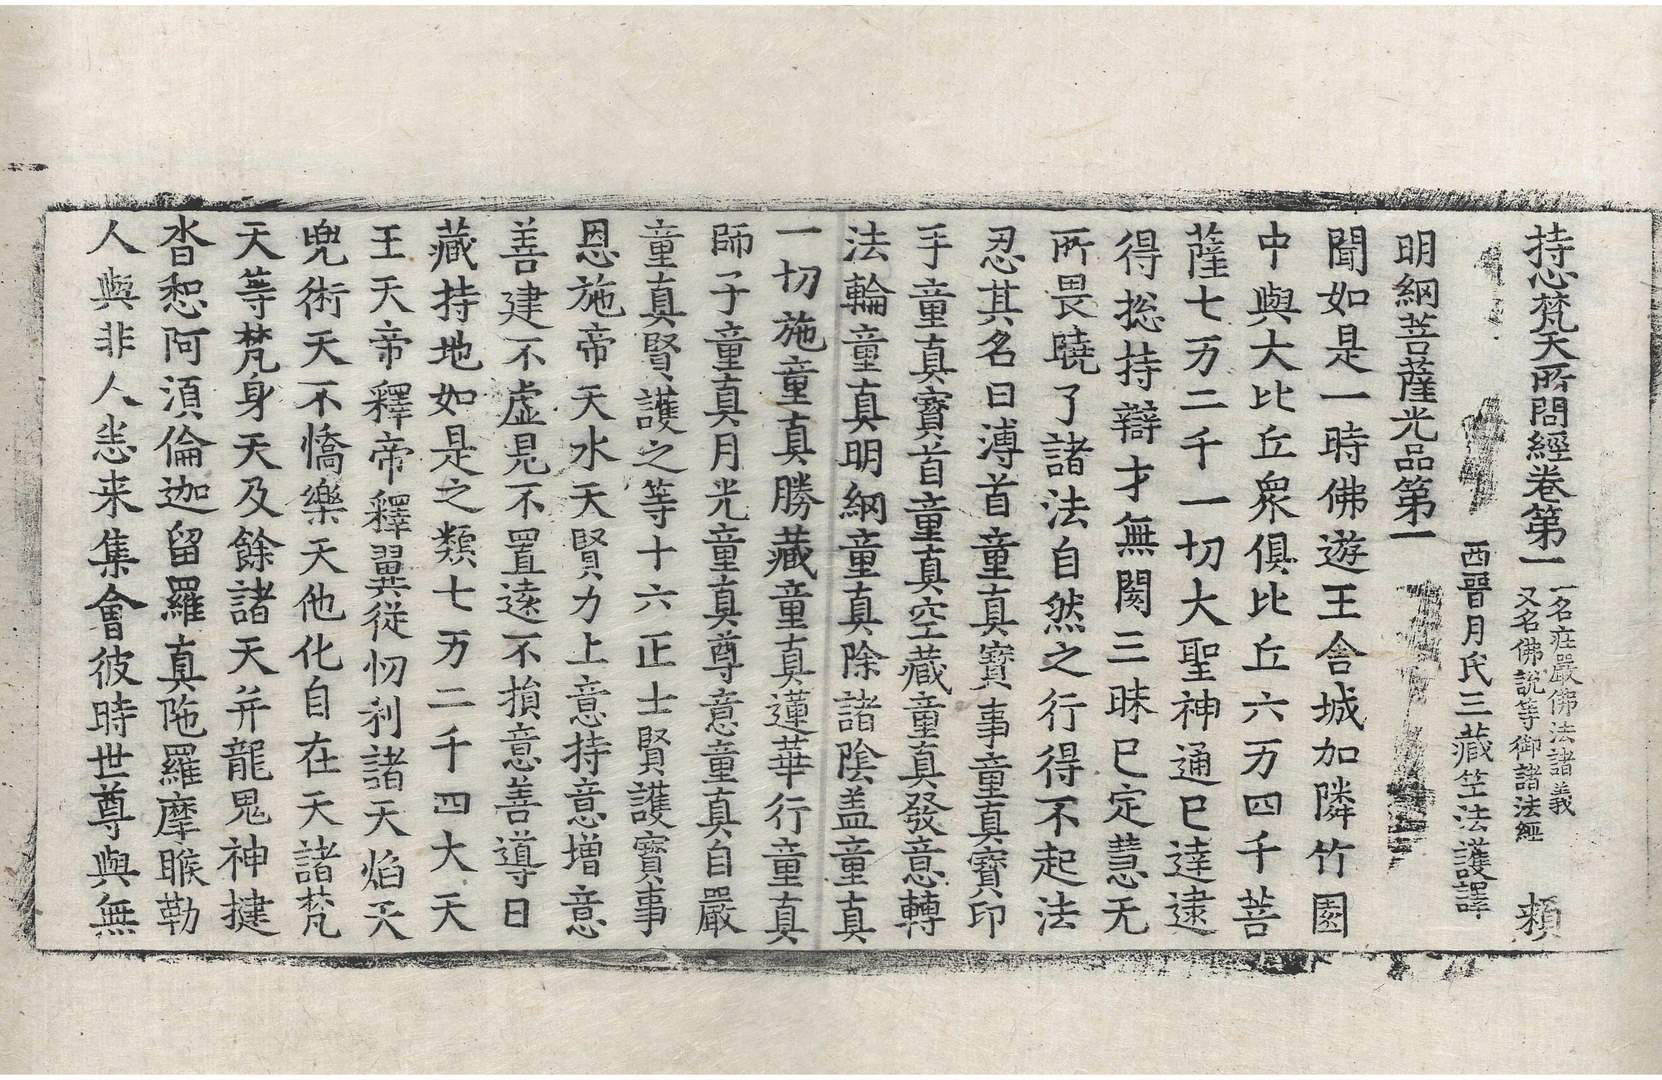 持心梵天所問經卷第一 一名莊嚴佛法諸義 又名佛說等御諸法經 頼
西晉月氏三藏竺法護譯
明網菩薩光品第一
聞如是一時佛遊王舎城加隣竹園
中與大比丘衆俱比丘六万四千菩
薩七万二千一切大聖神通已達逮
得捴持辯才無閡三昧已定慧无
所畏曉了諸法自然之行得不起法
忍其名曰溥首童真寶事童真寶印
手童真寶首童真空藏童真發意轉
法輪童真明網童真除諸陰盖童真
一切施童真勝藏童真蓮華行童真
師子童真月光童真尊意童真自嚴
童真賢護之等十六正士賢護寶事
恩施帝天水天賢力上意持意增意
善建不虚見不置逺不損意善導日
藏持地如是之類七万二千四大天
王天帝釋帝釋翼従忉利諸天焰天
兜術天不憍樂天他化自在天諸梵
天等梵身天及餘諸天并龍鬼神揵
沓惒阿湏倫迦留羅真陁羅摩睺勒
人與非人悉来集會彼時世尊與無